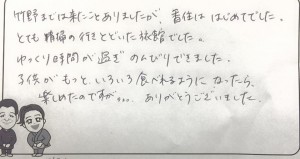 竹野までは来たことありましたが、香住ははじめてでした。
とても清掃の行きとどいた旅館でした。
ゆっくり時間が過ぎのんびりできました。
子供がもっといろいろ食べれるようになったら、
楽しめたのですが... ありがとうございました。